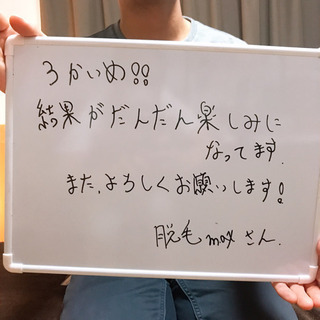 3かいめ!!
結果がだんだん楽しみに
なってます.
また,よろしくお願いします!
脱毛maxさん.